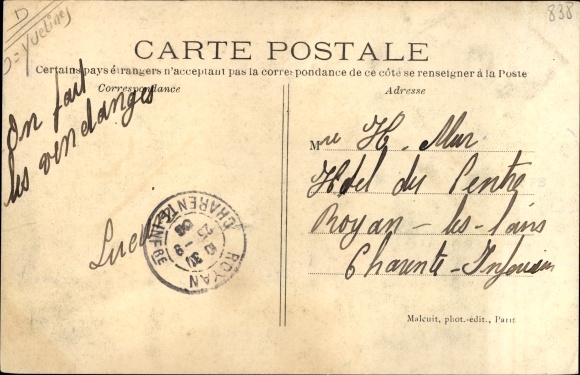 D
D = Yvelines
838
CARTE POSTALE
Certains pays étrangers n'acceptant pas la correspondance de ce côté se renseigner à la Poste
Correspondance
Adresse
On fait
les vendanges
Mme H. Mur
Hôtel du Centre
Royan-les-bains
Charente-Inférieure
ROYAN
CHARENTE INFRE
10 30
25 - 9
08
Malcuit, phot.-édit., Paris